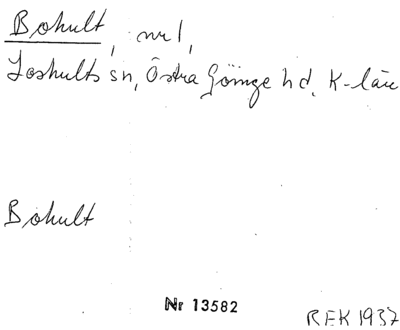 Bohult, nr 1,
Loshults sn, Östra Göinge hd, K-län
Bohult
Nr 13582
REK 1937